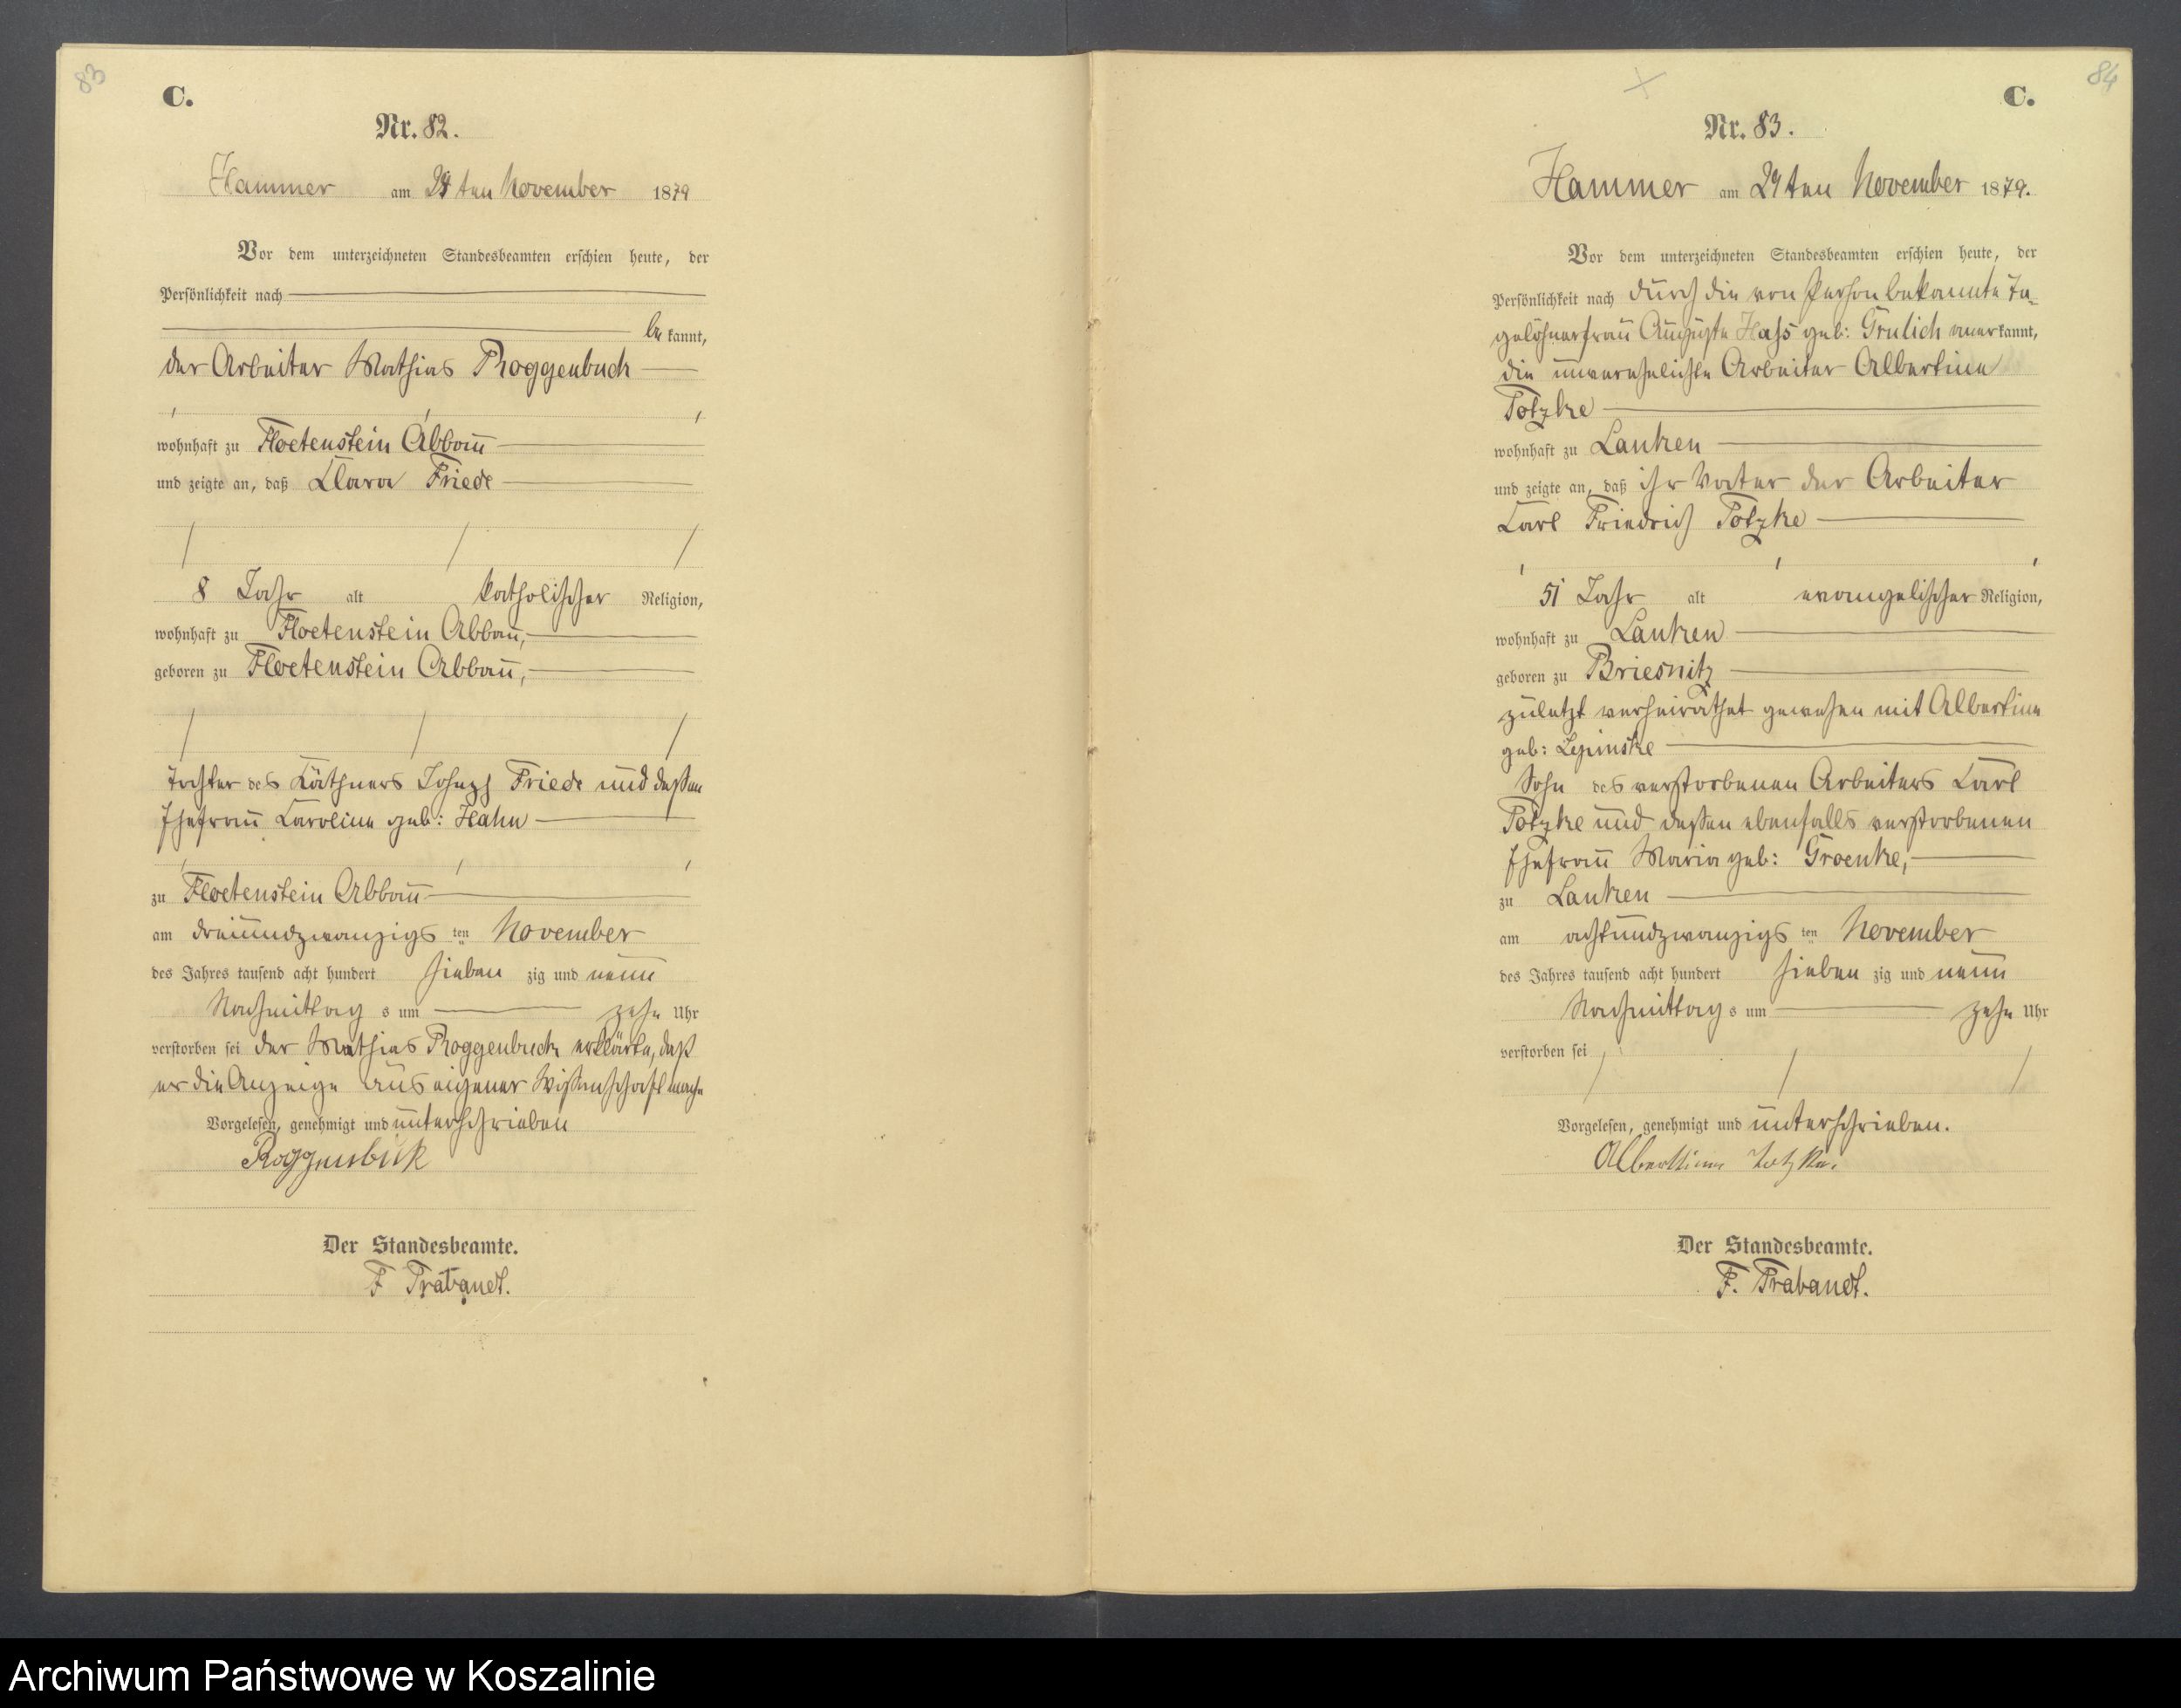 83
C.
Nr. 82.
Hammer am 24 ten November 1879
Vor dem unterzeichneten Standesbeamten erschien heute, der
Persönlichkeit nach
be kannt,
der Arbeiter Mathias Roggenbuck
wohnhaft zu Floetenstein Abbau
und zeigte an, daß Clara Friede
8 Jahr alt katholischer Religion,
wohnhaft zu Floetenstein Abbau,
geboren zu Floetenstein Abbau,
Tochter des Käthners Joseph Friede und dessen
Ehefrau Caroline geb: Hahn
zu Floetenstein Abbau
am dreiundzwanzigs ten November
des Jahres tausend acht hundert sieben zig und neun
Nachmittag s um zehn Uhr
verstorben sei der Mathias Roggenbuck erklärte, daß
er die Anzeige aus eigener Wissenschaft mache
Vorgelesen, genehmigt und unterschrieben
Roggenbuk
Der Standesbeamte.
F Trabandt.
84
C.
Nr. 83.
Hammer am 29 ten November 1879.
Vor dem unterzeichneten Standesbeamten erschien heute, der
Persönlichkeit nach durch die von Person bekannte Ta-
gelöhnerfrau Auguste Hass geb: Grulich aner kannt,
die unverehelichte Arbeiter Albertine
Totzke
wohnhaft zu Lanken
und zeigte an, daß ihr Vater der Arbeiter
Carl Friedrich Totzke
51 Jahr alt evangelischer Religion,
wohnhaft zu Lanken
geboren zu Briesnitz
zuletzt verheirathet gewesen mit Albertine
geb:
Sohn des verstorbenen Arbeiters Carl
Totzke und dessen ebenfalls verstorbenen
Ehefrau Maria geb: Groenke,
zu Lanken
am achtundzwanzigs ten November
des Jahres tausend acht hundert sieben zig und neun
Nachmittag s um zehn Uhr
verstorben sei
Vorgelesen, genehmigt und unterschrieben.
Albertine Totzke.
Der Standesbeamte.
F. Trabandt.
Archiwum Państwowe w Koszalinie